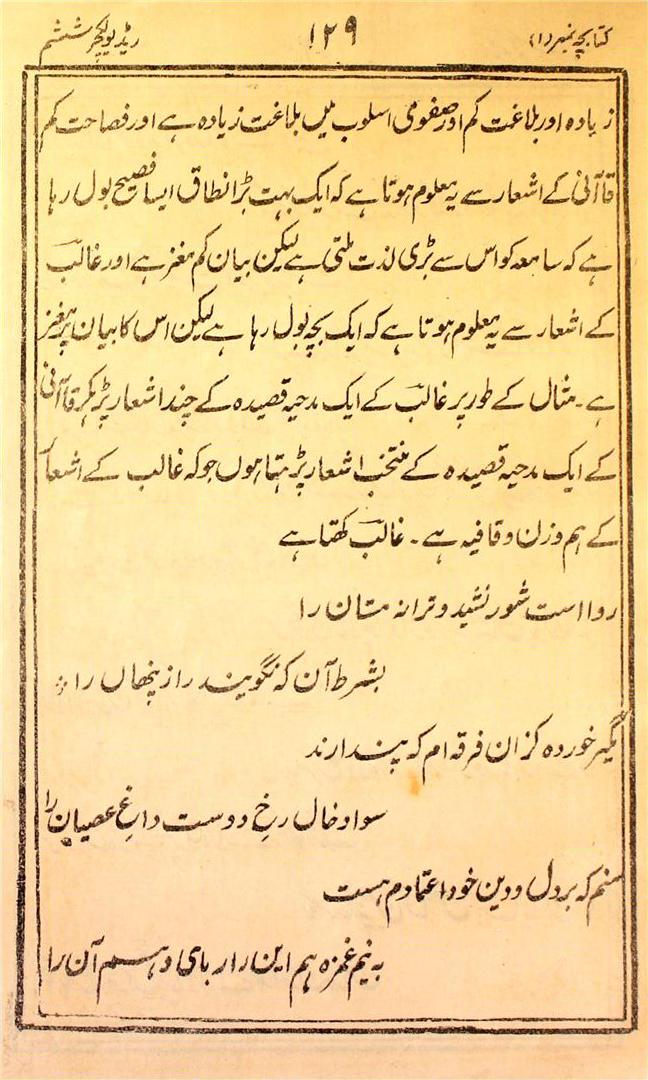 کتابچہ نمبر (۱) ۱۲۹ ریڈیو لکچر ششم
زیادہ اور بلاغت کم اور صفوی اسلوب میں بلاغت زیادہ ہے اور فصاحت کم
قاآنی کے اشعار سے یہ معلوم ہوتا ہے کہ ایک بہت بڑا نطاق ایسا فصیح بول رہا
ہے کہ سامعہ کو اس سے بڑی لذت ملتی ہے لیکن بیان کم مغز ہے اور غالب
کے اشعار سے یہ معلوم ہوتا ہے کہ ایک بچہ بول رہا ہے لیکن اس کا بیان پر مغز
ہے۔ مثال کے طور پر غالب کے ایک مدحیہ قصیدہ کے چند اشعار پڑہکر قاآنی
کے ایک مدحیہ قصیدہ کے منتخب اشعار پڑہتا ہوں جو کہ غالب کے اشعار
کے ہم وزن و قافیہ ہے۔ غالب کہتا ہے
روا است شور نشید و ترانہ مستان را
بشرط آن کہ نگویند راز پنہاں را
مگیر خوردہ کز ان فرقہ ام کہ پندارند
سواد خال رخِ دوست داغِ عصیان را
منم کہ بر دل و دین خود اعتمادم ہست
بہ نیم غمزہ ہم این را ربای و ہم آن را